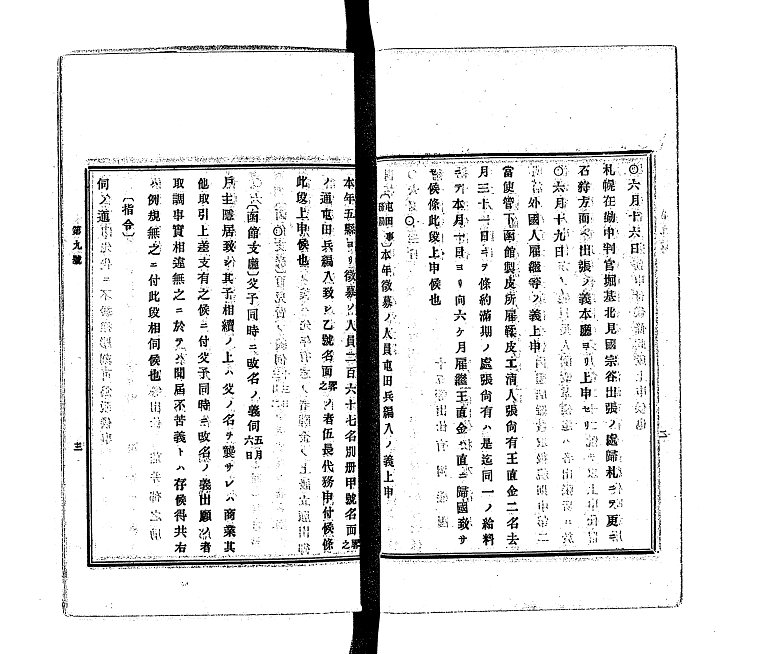 〇六月十六日
札幌在勤中判官堀基北見國宗谷出張ノ處歸札ニテ更ニ
石狩方面ヘ出張ノ義本廳ヨリ上申セリ
〇六月十九日
外國人雇繼等ノ義上申
當使管下函館製皮所雇鞣皮工清人張尙有王直金二名去
月三十一日ニテ條約滿期ノ處張尙有ハ是迄同一ノ給料
ニテ本月一日ヨリ向六ケ月雇繼王直金ハ直ニ歸國致サ
セ候條此段上申候也
〇屯田事務局本年徵募ノ人員屯田兵編入ノ義上申
本年五縣ヨリ徵募ノ人員三百六十七名別册甲號名面畧之
ノ通屯田兵編入致シ乙號名面畧之ノ者伍長代務申付候條
此段上申候也
〇函館支廳父子同時ニ改名ノ義伺五月六日
戶主隱居致シ其子相續ノ上ハ父ノ名ヲ襲サレハ商業其
他取引上差支有之候ニ付父子同時ニ改名ノ義出願ノ者
取調事實相違無之ニ於テハ聞屆不苦義トハ存候得共右
例規無之ニ付此段相伺候也
〔指令〕
伺ノ通
第九號
三
二